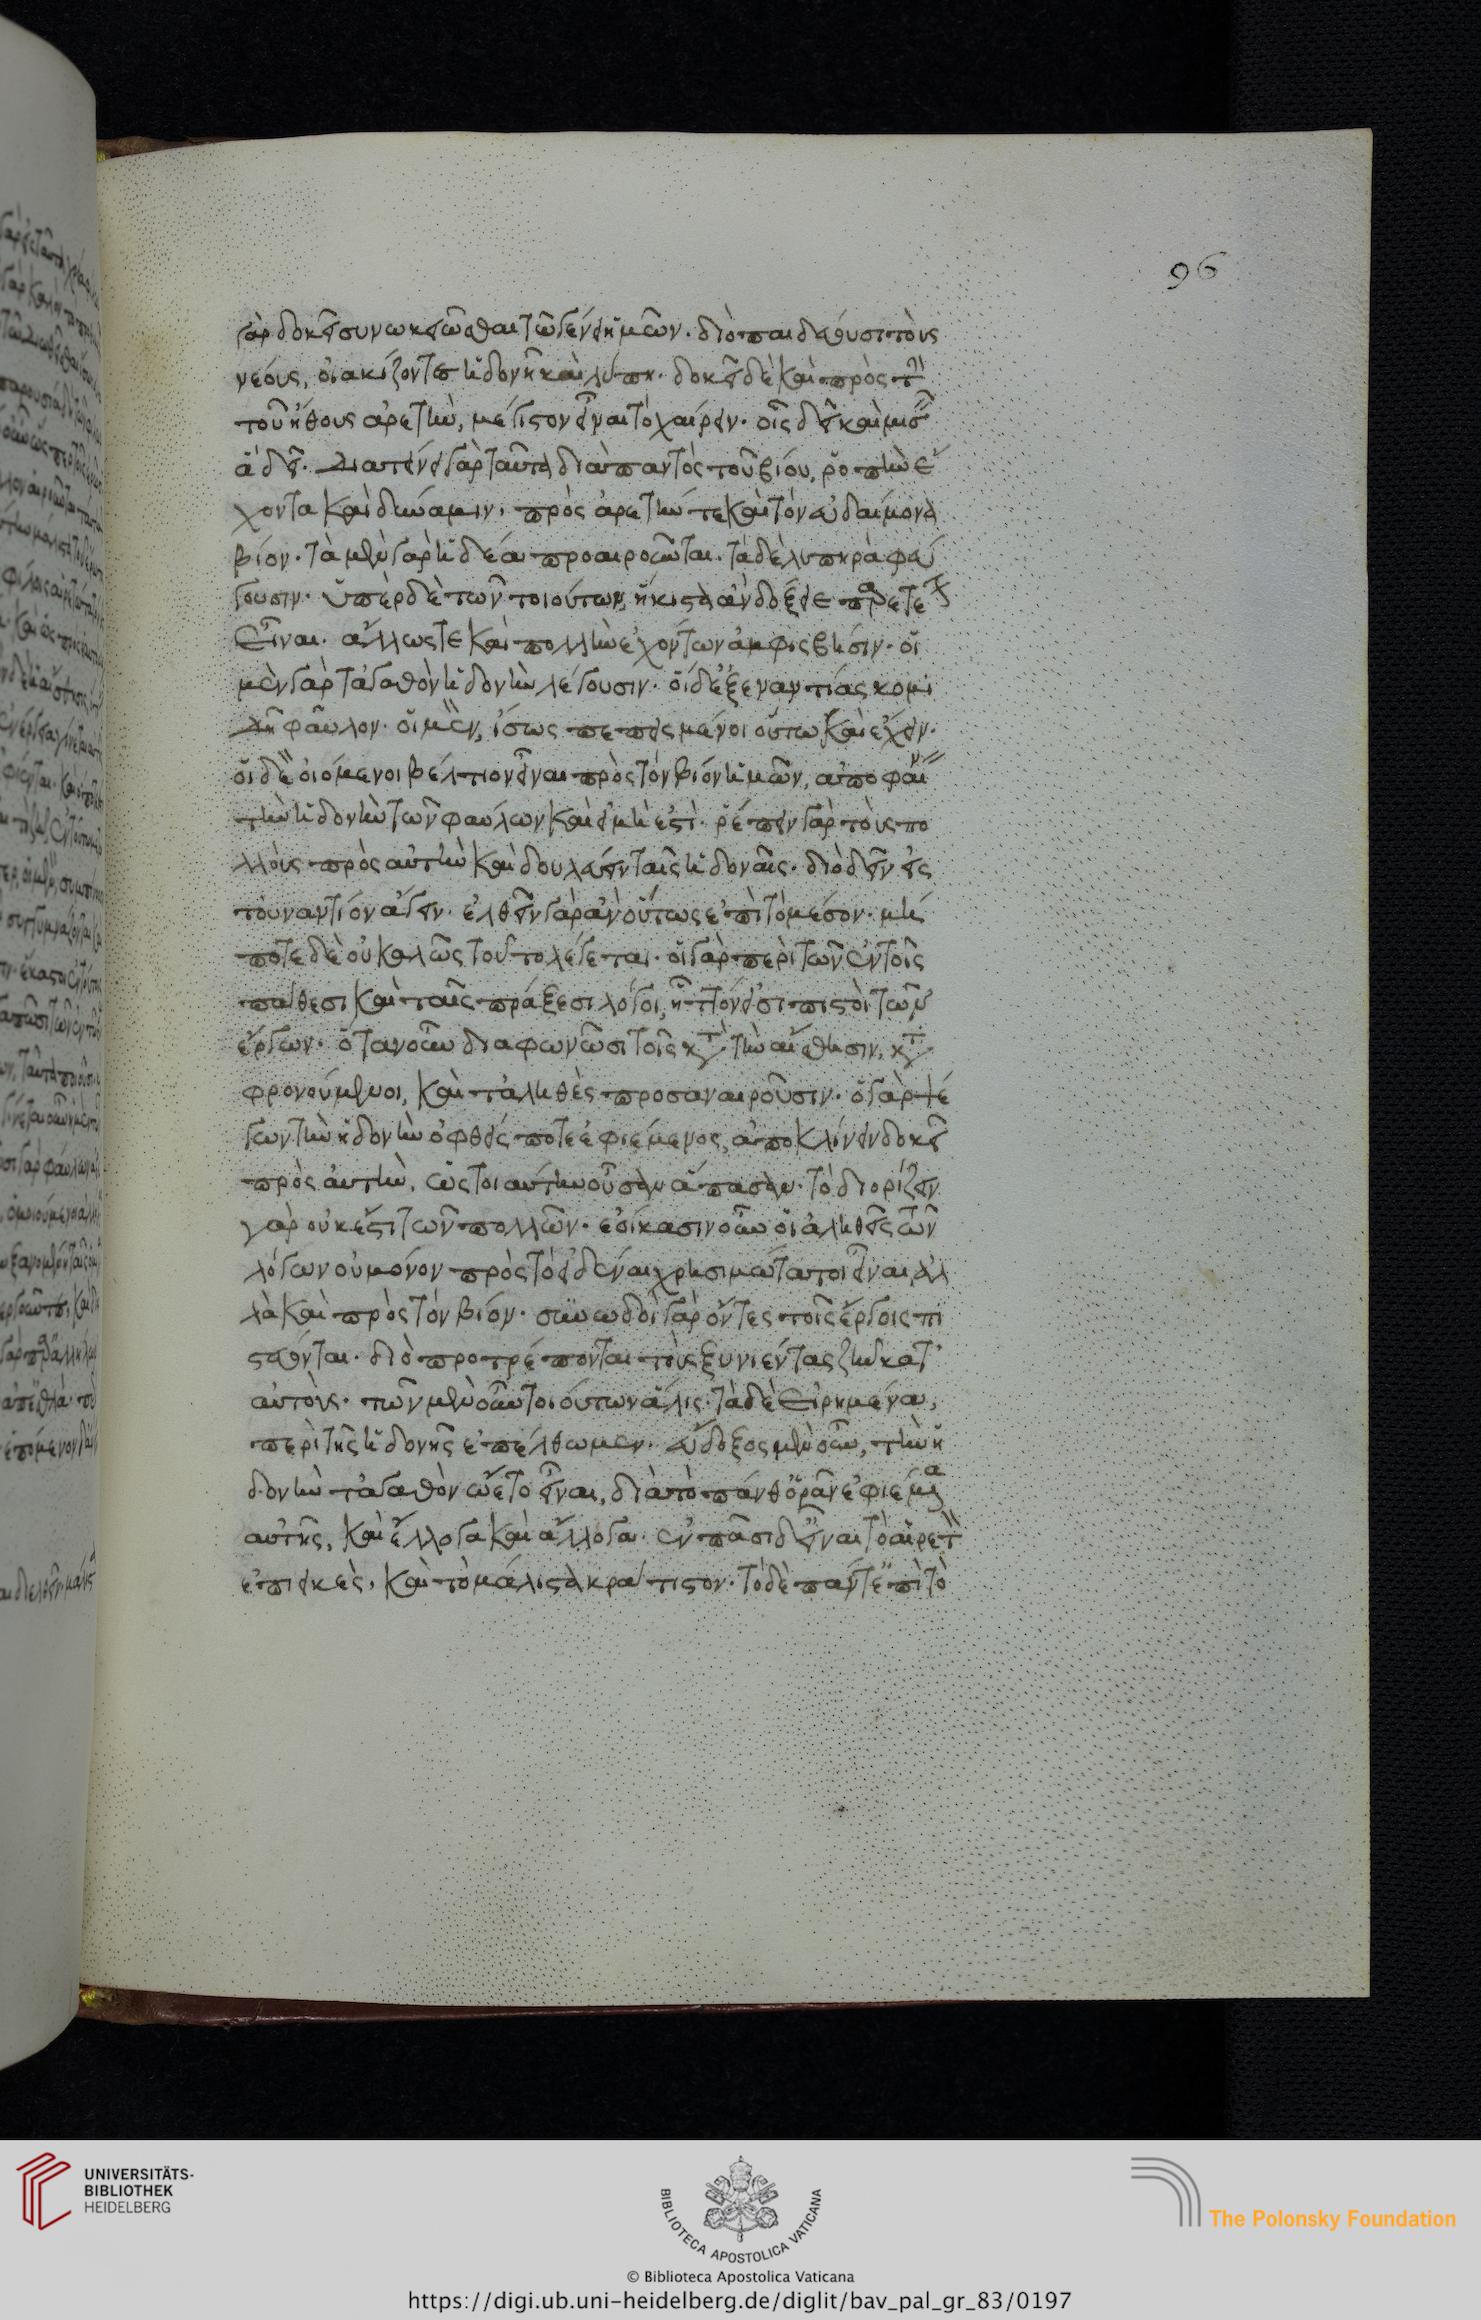 96
γὰρ δοκεῖ συνωκειῶσθαι τῶ γένει ἡμῶν. διὸ παιδεύουσι τοὺς
νέους, οἰακίζοντες ἡδονῆ καὶ λύπη. δοκεῖ δὲ καὶ πρὸς τὴν
τοῦ ἤθους ἀρετὴν, μέγιστον εἶναι τὸ χαίρειν. οἷς δεῖ καὶ μισεῖν
ἃ δεῖ. διατείνει γὰρ ταῦτα διὰ παντὸς τοῦ βίου, ῥοπὴν ἔ
χοντα καὶ δύναμιν, πρὸς ἀρετήν τε καὶ τὸν εὐδαίμονα
βίον. τὰ μὲν γὰρ ἡδέα προαιροῦνται. τὰ δὲ λυπηρὰ φεύ
γουσιν. ὑπὲρ δὲ τῶν τοιούτων, ἥκιστα ἂν δόξειε παρετέον
εἶναι. ἄλλως τε καὶ πολλὴν ἐχόντων ἀμφισβήτησιν. οἱ
μὲν γὰρ τἀγαθὸν ἡδονὴν λέγουσιν. οἱ δὲ ἐξεναντίας κομι
δῆ φαῦλον. οἱ μὲν, ἴσως πεπεισμένοι οὕτω καὶ ἔχειν.
οἱ δὲ οἰόμενοι βέλτιον εἶναι πρὸς τὸν βίον ἡμῶν, ἀποφαίνειν
τὴν ἡδονὴν τῶν φαύλων καὶ εἰ μή ἐστι. ῥέπειν γὰρ τοὺς πο
λλοὺς πρὸς αὐτὴν καὶ δουλεύειν ταῖς ἡδοναῖς. διὸ δεῖν εἰς
τοὐναντίον ἄγειν. ἐλθεῖν γὰρ ἂν οὕτως ἐπὶ τὸ μέσον. μή
ποτε δὲ οὐ καλῶς τοῦτο λέγεται. οἱ γὰρ περὶ τῶν ἐν τοῖς
πάθεσι καὶ ταῖς πράξεσι λόγοι, ἧττόν εἰσι πιστοὶ τῶν
ἔργων. ὅταν οὖν διαφωνῶσι τοῖς κατὰ τὴν αἴσθησιν, κατα
φρονούμενοι, καὶ τἀληθὲς προσαναιροῦσιν. ὁ γὰρ ψέ
γων τὴν ἡδονὴν ὀφθείς ποτε ἐφιέμενος, ἀποκλίνειν δοκεῖ
πρὸς αὐτὴν, ὡς τοιαύτην οὖσαν ἅπασαν. τὸ διορίζειν
γὰρ οὐκ ἔστι τῶν πολλῶν. ἐοίκασιν οὖν οἱ ἀληθεῖς τῶν
λόγων οὐ μόνον πρὸς τὸ εἰδέναι χρησιμώτατοι εἶναι, ἀλ
λὰ καὶ πρὸς τὸν βίον. συνωδοὶ γὰρ ὄντες τοῖς ἔργοις πι
στεύονται. διὸ προτρέπονται τοὺς ξυνιέντας ζῆν κατ'
αὐτούς. τῶν μὲν οὖν τοιούτων ἅλις. τὰ δὲ εἰρημένα,
περὶ τῆς ἡδονῆς ἐπέλθωμεν. εὔδοξος μὲν οὖν, τὴν ἡ
δονὴν τἀγαθὸν ᾤετο εἶναι, διὰ τὸ πάνθ' ὁρᾶν ἐφιέμενα
αὐτῆς, καὶ ἔλλογα καὶ ἄλλογα. ἐν πᾶσι δ' εἶναι τὸ αἱρετὸν
ἐπιεικὲς, καὶ τὸ μάλιστα κράτιστον. τὸ δὲ πάντ' ἐπὶ τὸ
UNIVERSITÄTS-
BIBLIOTHEK
HEIDELBERG
BIBLIOTECA APOSTOLICA VATICANA
The Polonsky Foundation
© Biblioteca Apostolica Vaticana
https://digi.ub.uni-heidelberg.de/diglit/bav_pal_gr_83/0197